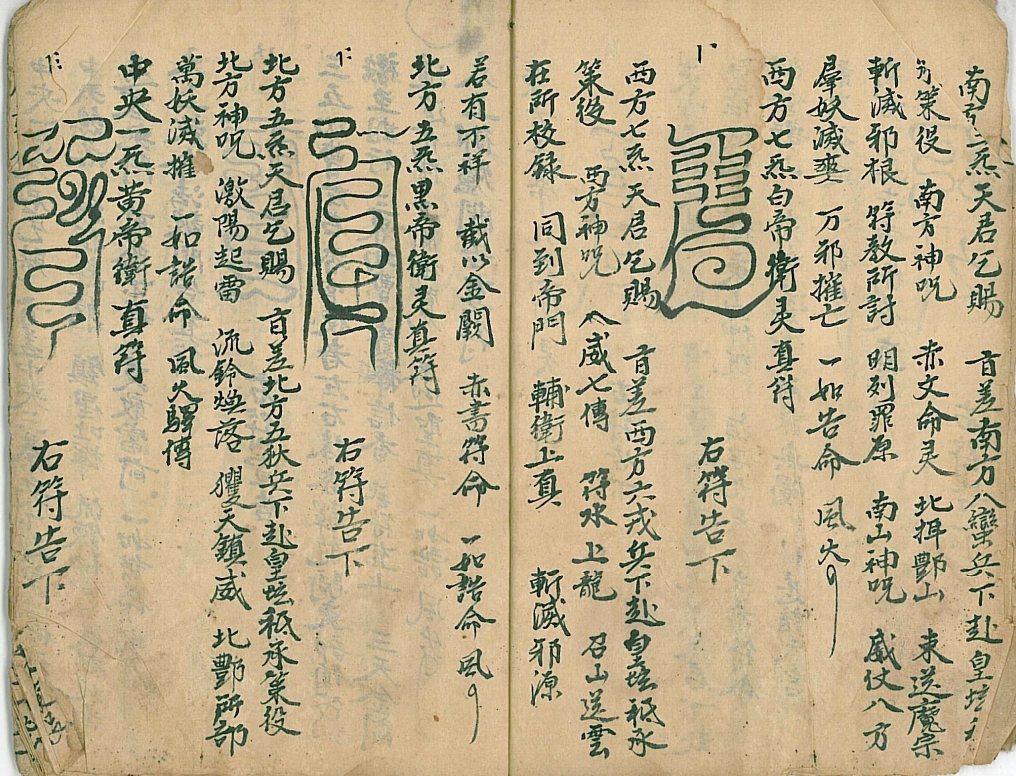 南方三炁天君乞賜 百差南方八蠻兵下赴皇壇
策役 南方神咒 赤文命灵 北揖酆山 束送魔宗
斬滅邪根 符教所討 明列罪原 南山神咒 威仗八方
羣妖滅爽 万邪摧亡 一如告命 風火
西方七炁白帝衛灵真符
右符告下
西方七炁天君乞賜 百差西方六戎兵下赴皇壇祗承
策役 西方神咒 八威七傳 符水上龍 召山送雲
在所校録 同到帝門 輔衛上真 斬滅邪源
若有不祥 截以金關 赤書符命 一如誥命 風
北方五炁黒帝衛灵真符
右符告下
北方五炁天君乞賜 百差北方五狄兵下赴皇壇祗承策役
北方神咒 激陽起雷 流鈴煥落 玃天鎮威 北酆所部
萬妖滅摧 一如誥命 風火驛傳
中央一炁黄帝衛真符
右符告下